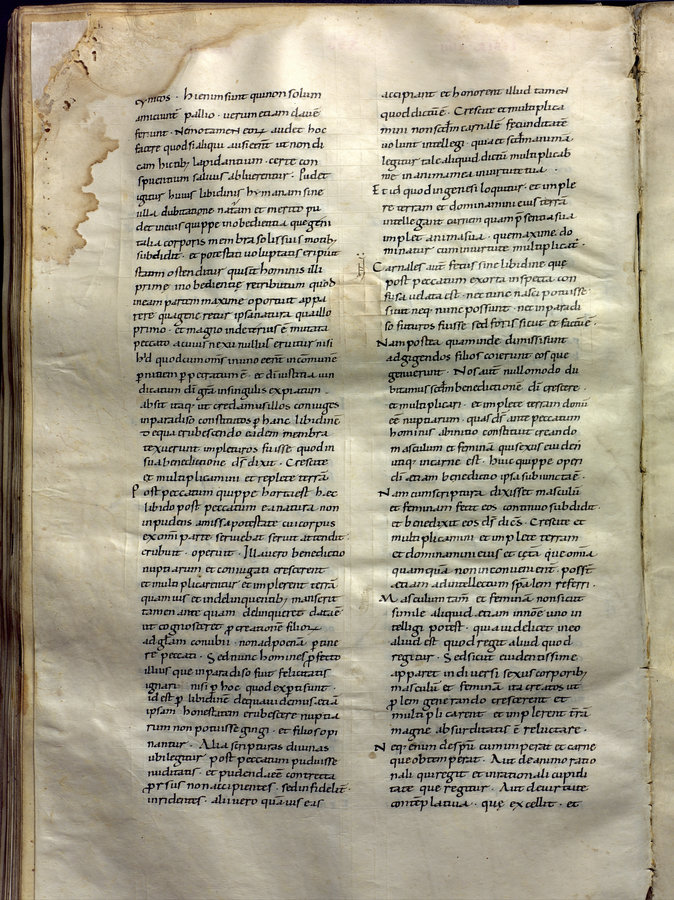 cynicos. hi enim sunt qui non solum
amiciunt pallio. verum etiam clavā
ferunt. Nemo tamen eorum audet hoc
facere quod si aliqui ausi eent ut non di
cam hictib; lapidantium. certe con
spuentium salivis obluerentur. Pudet
igitur huius libidinis humanam sine
ulla dubitatione naturam et merito pu
det in eius quippe inobedientia que geni
talia corporis membra solis suis motib;
subdidit. et potestati voluptatis eripuit
statim ostenditur quid sit hominis illi
prime inobedientie retributum quod
in eam partem maxime oportuit appa
rere qua generetur ipsa natura qua illo
primo. et magno in deterius ē mutata
peccato a cuius nexu nullus eruitur nisi
id quod cum oms in uno eent in comune
pnitiem ppetratum ē. et di iustitia uin
dicatum di gra in singulis expiatum.
absit itaq; ut credamus illos coniuges
in paradiso constitutos p hanc libidinē
de qua erubescendo eadem membra
texerunt impleturos fuisse quod in
sua benedictione ds dixit. Crescite
et multiplicamini et replete terrā
Post peccatum quippe horta est hec
libido post peccatum ea natura non
inpudens amissa potestate cui corpus
ex omi parte serviebat sensit attendit
erubuit. operuit. Illa vero benedictio
nuptiarum et coniugati crescerent
et multiplicarentur et implerent terrā
quamvis et in delinquentib; manserit
tamen antequam delinquerent data ē
ut cognosceret pcreatione filiorum
ad glam conubii. non ad poenā ptine
re peccati. Sed nunc homines pfecto
illius que in paradiso fuit felicitatis
ignari. nisi p hoc quod expti sunt.
id est p libidinē de qua videmus etiā
ipsam honestatem erubescere nuptia
rum non potuisse gigni. et filios opi
nantur. Alii scripturas divinas
ubi legitur post peccatum puduisse
nuditatis. et pudenda eē contecta
prsus non accipientes. sed infidelit
inridentes. alii vero quamvis eas
accipiant et honorent illud tamen
quod dictū ē. Crescite et multiplica
mini non scdm carnalē fecunditatē
volunt intellegi. quia et scdm animam
legitur tale aliquid dictū multiplicab
me in anima mea in virtute tua.
Et id quod in genesi loquitur. et imple
re terram et dominamini eius terrā
intellegant carnem quam psentia sua
implet anima sua. que maxime do
minatur cum in virtute multiplicat.
Carnales aut fetus sine libidine que
post peccatum exorta inspecta con
fusa velata est. nec tunc nasci potuisse
sicut neq; nunc possunt. nec in paradi
so futuros fuisse sed foris sicut et factū ē.
Nam postea quam inde dimissi sunt
ad gigendos filios coierunt eosque
genuerunt. Nos aut nullo modo du
bitamus scdm benedictionē di crescere.
et multiplicari. et implere terram donū
eē nuptiarum. quas ds ante peccatum
hominis ab initio constituit creando
masculum et feminā qui sexus euiden
utiq; in carne est. Huic quippe operi
di etiam benedictio ipsa subiuncta ē.
Nam cum scriptura dixisset masculū
et feminam fecit eos continuo subdidit.
et benedixit eos ds dicēs. Crescite et
multiplicamini et implete terram
et dominamini eius et cęta que omia
quamquā non inconvenienter possēt
etiam ad intellectum spalem referri.
Masculum tam et feminā non sicut
simile aliquid etiam in homīe uno in
telligi potest. quia videlicet in eo
aliud est quod regit aliud quod
regitur. Sed sicut evidentissime
apparet in diversi sexus corporib;
masculū et feminā ita creatos ut
plem generando crescerent et
multiplicarent et implerent trā
magne absurditatis ē reluctare.
Neq; enim de spu cum imperat et carne
que obtemperat. Aut de animo ratio
nali qui regit et inrationali cupidi
tate que regitur. Aut de virtute
contēplativa. quę excellit. et